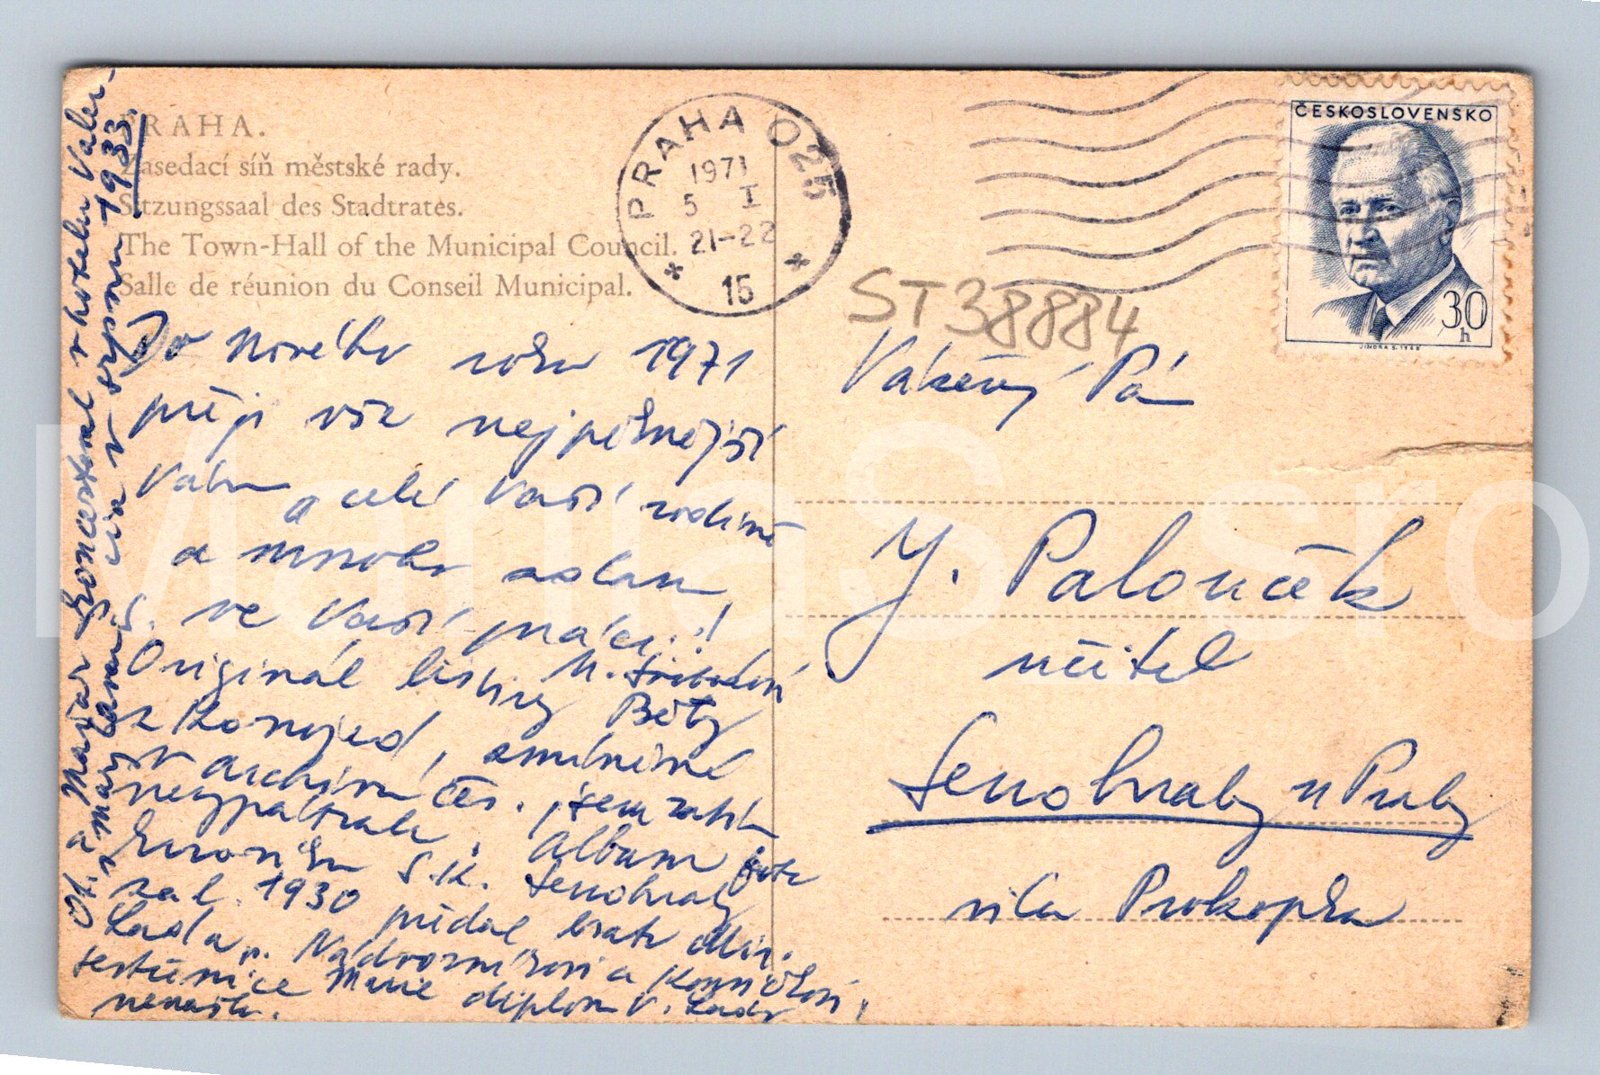 PRAHA.
Zasedací síň městské rady.
Sitzungssaal des Stadtrates.
The Town-Hall of the Municipal Council.
Salle de réunion du Conseil Municipal.
PRAHA 025
1971
5 I
21-22
15
ČESKOSLOVENSKO
30
h
JINDRA S. 1968
ST38884
Do nového roku 1971
přeji vše nejpěknější
Vám a celé Vaší rodině
a mnoho zdaru
ve Vaší práci!
M. Svobodová
Originál listiny Běty
z Konojed,
v archivu čes. jsem zatím
nevypátrala. Album foto
kroniku S.K. Senohraby
zal. 1930 předal bratr
Lada p. Nádvorníkovi a
sestřenice Marie diplom V. Lady
nenašla.
v hotelu
v srpnu 1933.
Vážený Pán
J. Palouček
učitel
Senohraby u Prahy
vila Prokopka
ManiaS sro